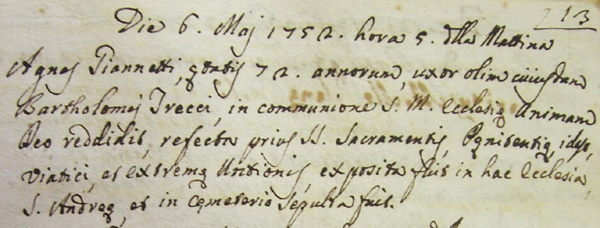 213
Die 6. Maj 1752. hora 5. dlla Mattina
Agnes Giannetti, ętatis 72. annorum, uxor olim cuiusdam
Bartholomej Trecci, in communione S. M. Ecclesię Animam
Deo reddidit, refecta prius SS. Sacramentis, Pęnitentię, idq,
Viatici, et extremę Unctionis, exposita fuit in hac Ecclesia,
S. Andreę, et in Cęmeterio Sepulta fuit.